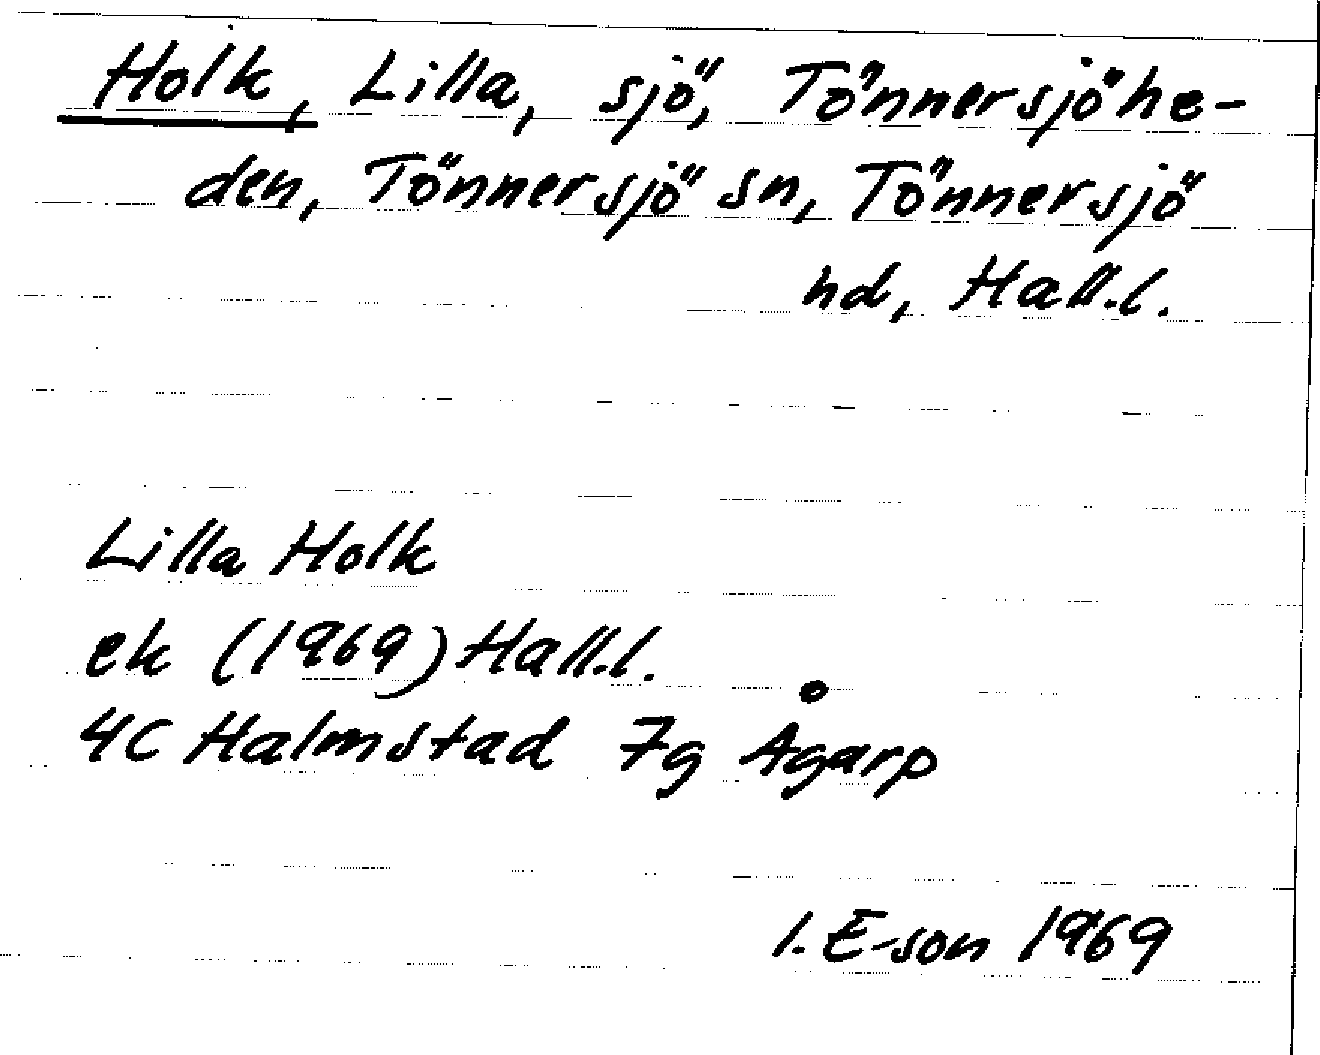 Holk, Lilla, sjö, Tönnersjöhe-
den, Tönnersjö sn, Tönnersjö
hd, Hall.l.
Lilla Holk
ek (1969) Hall.l.
4C Halmstad 7g Ågarp
I. E-son 1969